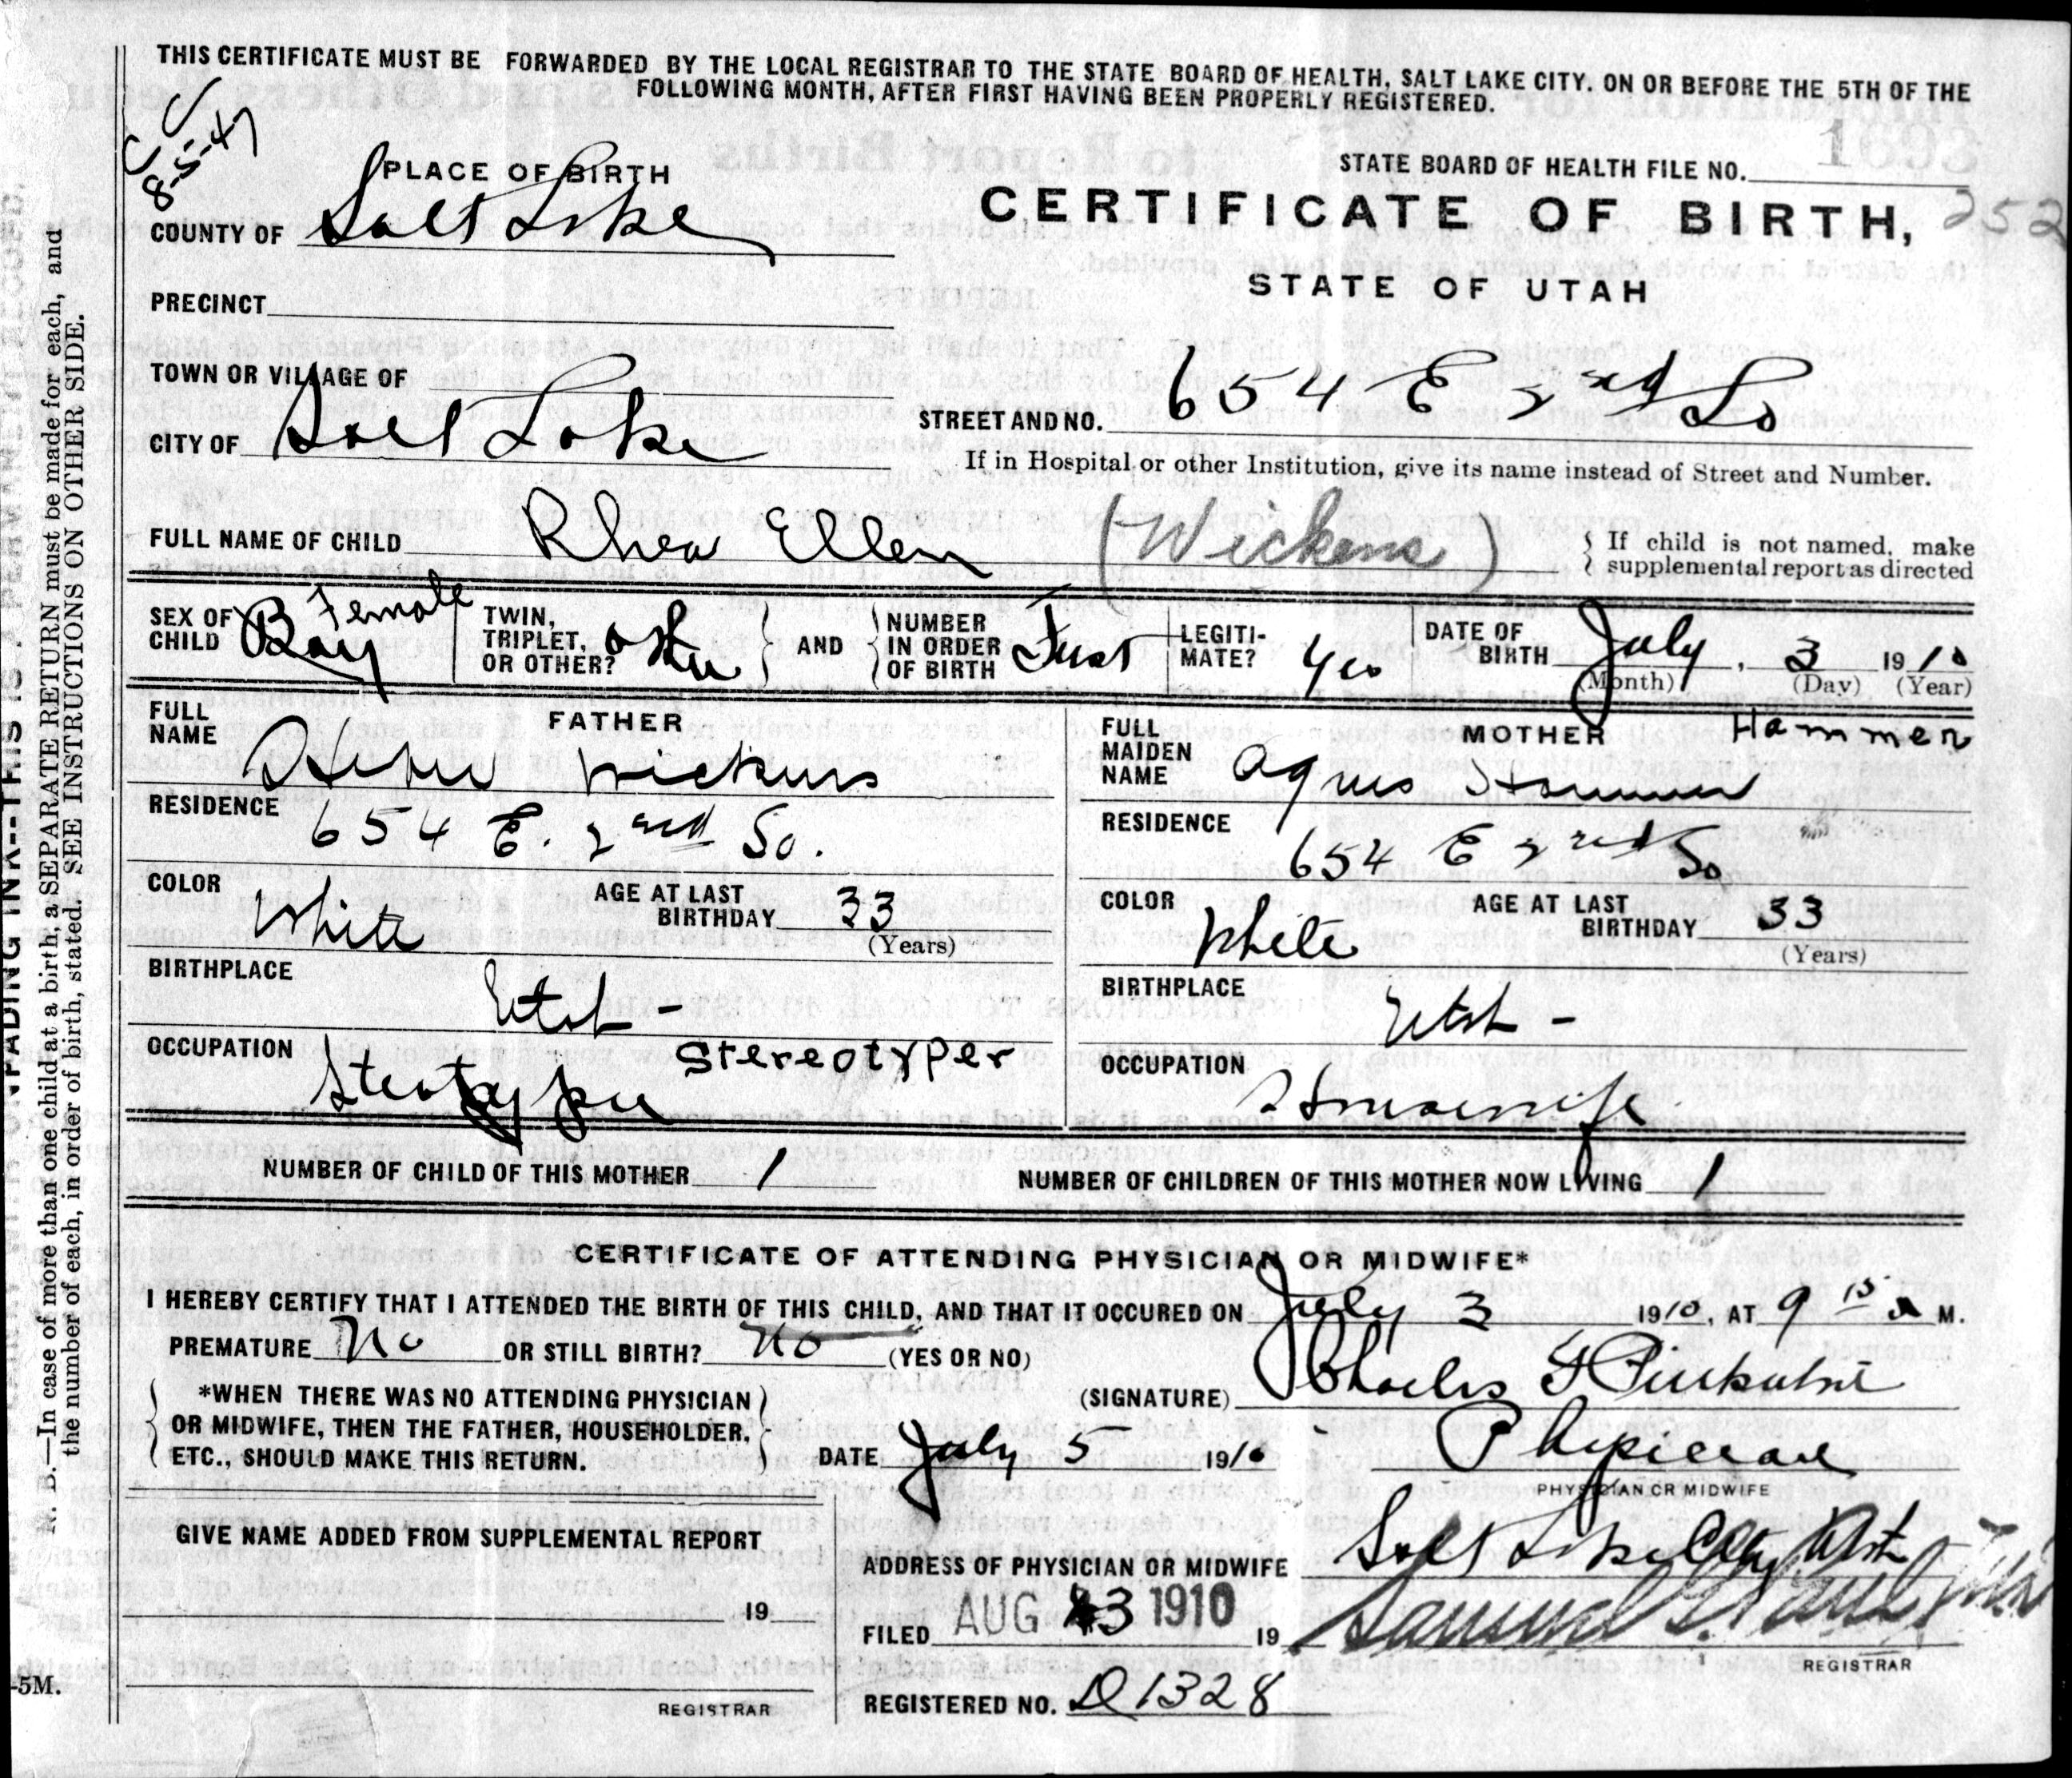 THIS CERTIFICATE MUST BE FORWARDED BY THE LOCAL REGISTRAR TO THE STATE BOARD OF HEALTH, SALT LAKE CITY. ON OR BEFORE THE 5TH OF THE
FOLLOWING MONTH, AFTER FIRST HAVING BEEN PROPERLY REGISTERED.
8-5-47
PLACE OF BIRTH
STATE BOARD OF HEALTH FILE NO. 1693
252
CERTIFICATE OF BIRTH,
STATE OF UTAH
COUNTY OF Salt Lake
PRECINCT
TOWN OR VILLAGE OF
CITY OF Salt Lake
STREET AND NO. 654 E 2nd So
If in Hospital or other Institution, give its name instead of Street and Number.
FULL NAME OF CHILD Rhea Ellen (Wickens)
If child is not named, make
supplemental report as directed
SEX OF CHILD Boy Female
TWIN, TRIPLET, OR OTHER? other
AND
NUMBER IN ORDER OF BIRTH First
LEGITIMATE? Yes
DATE OF BIRTH July, 3 1910
(Month) (Day) (Year)
FATHER
FULL NAME Wickens
RESIDENCE 654 E. 2nd So.
COLOR White
AGE AT LAST BIRTHDAY 33
(Years)
BIRTHPLACE Utah -
OCCUPATION Sterotyper Stereotyper
MOTHER Hammer
FULL MAIDEN NAME Agnes Hammer
RESIDENCE 654 E 2nd So
COLOR White
AGE AT LAST BIRTHDAY 33
(Years)
BIRTHPLACE Utah -
OCCUPATION Housewife
NUMBER OF CHILD OF THIS MOTHER 1
NUMBER OF CHILDREN OF THIS MOTHER NOW LIVING 1
CERTIFICATE OF ATTENDING PHYSICIAN OR MIDWIFE*
I HEREBY CERTIFY THAT I ATTENDED THE BIRTH OF THIS CHILD, AND THAT IT OCCURED ON July 3 1910, AT 9 15 a M.
PREMATURE No OR STILL BIRTH? No (YES OR NO)
(SIGNATURE) Charles
*WHEN THERE WAS NO ATTENDING PHYSICIAN
OR MIDWIFE, THEN THE FATHER, HOUSEHOLDER,
ETC., SHOULD MAKE THIS RETURN.
DATE July 5 1910
Physician
PHYSICIAN OR MIDWIFE
GIVE NAME ADDED FROM SUPPLEMENTAL REPORT
19
REGISTRAR
ADDRESS OF PHYSICIAN OR MIDWIFE Salt Lake City Utah
FILED AUG 3 1910 19 Samuel G. Paul
REGISTRAR
REGISTERED NO. D1328
N. B.—In case of more than one child at a birth, a SEPARATE RETURN must be made for each, and
the number of each, in order of birth, stated. SEE INSTRUCTIONS ON OTHER SIDE.
-5M.